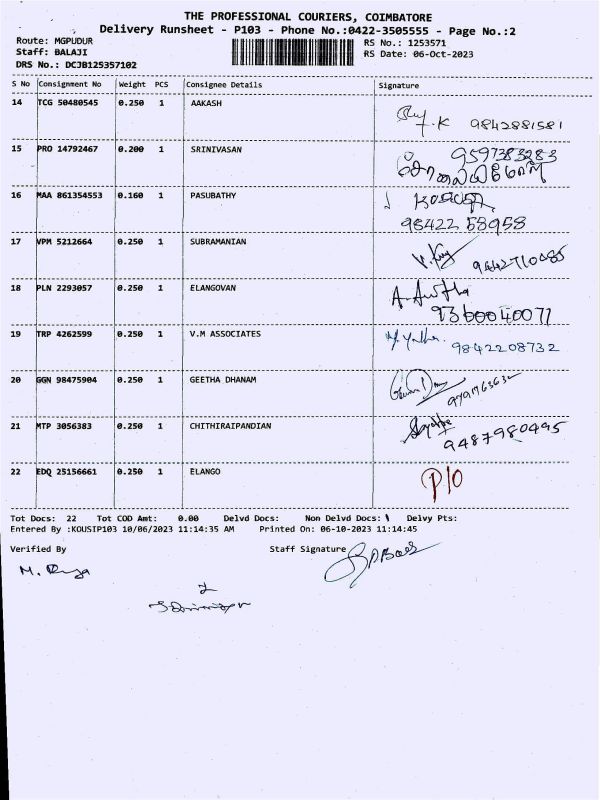 THE PROFESSIONAL COURIERS, COIMBATORE
Delivery Runsheet - P103 - Phone No.:0422-3505555 - Page No.:2
Route: MGPUDUR
Staff: BALAJI
DRS No.: DCJB125357102
RS No.: 1253571
RS Date: 06-Oct-2023
S No Consignment No Weight PCS Consignee Details Signature
14 TCG 50480545 0.250 1 AAKASH 9842881581
15 PRO 14792467 0.200 1 SRINIVASAN 9597383283
16 MAA 861354553 0.160 1 PASUBATHY 98422 58958
17 VPM 5212664 0.250 1 SUBRAMANIAN
18 PLN 2293057 0.250 1 ELANGOVAN 9360040071
19 TRP 4262599 0.250 1 V.M ASSOCIATES 9842208732
20 GGN 98475904 0.250 1 GEETHA DHANAM
21 MTP 3056383 0.250 1 CHITHIRAIPANDIAN 9487980495
22 EDQ 25156661 0.250 1 ELANGO P/O
Tot Docs: 22 Tot COD Amt: 0.00 Delvd Docs: Non Delvd Docs: 1 Delvy Pts:
Entered By :KOUSIP103 10/06/2023 11:14:35 AM Printed On: 06-10-2023 11:14:45
Verified By Staff Signature